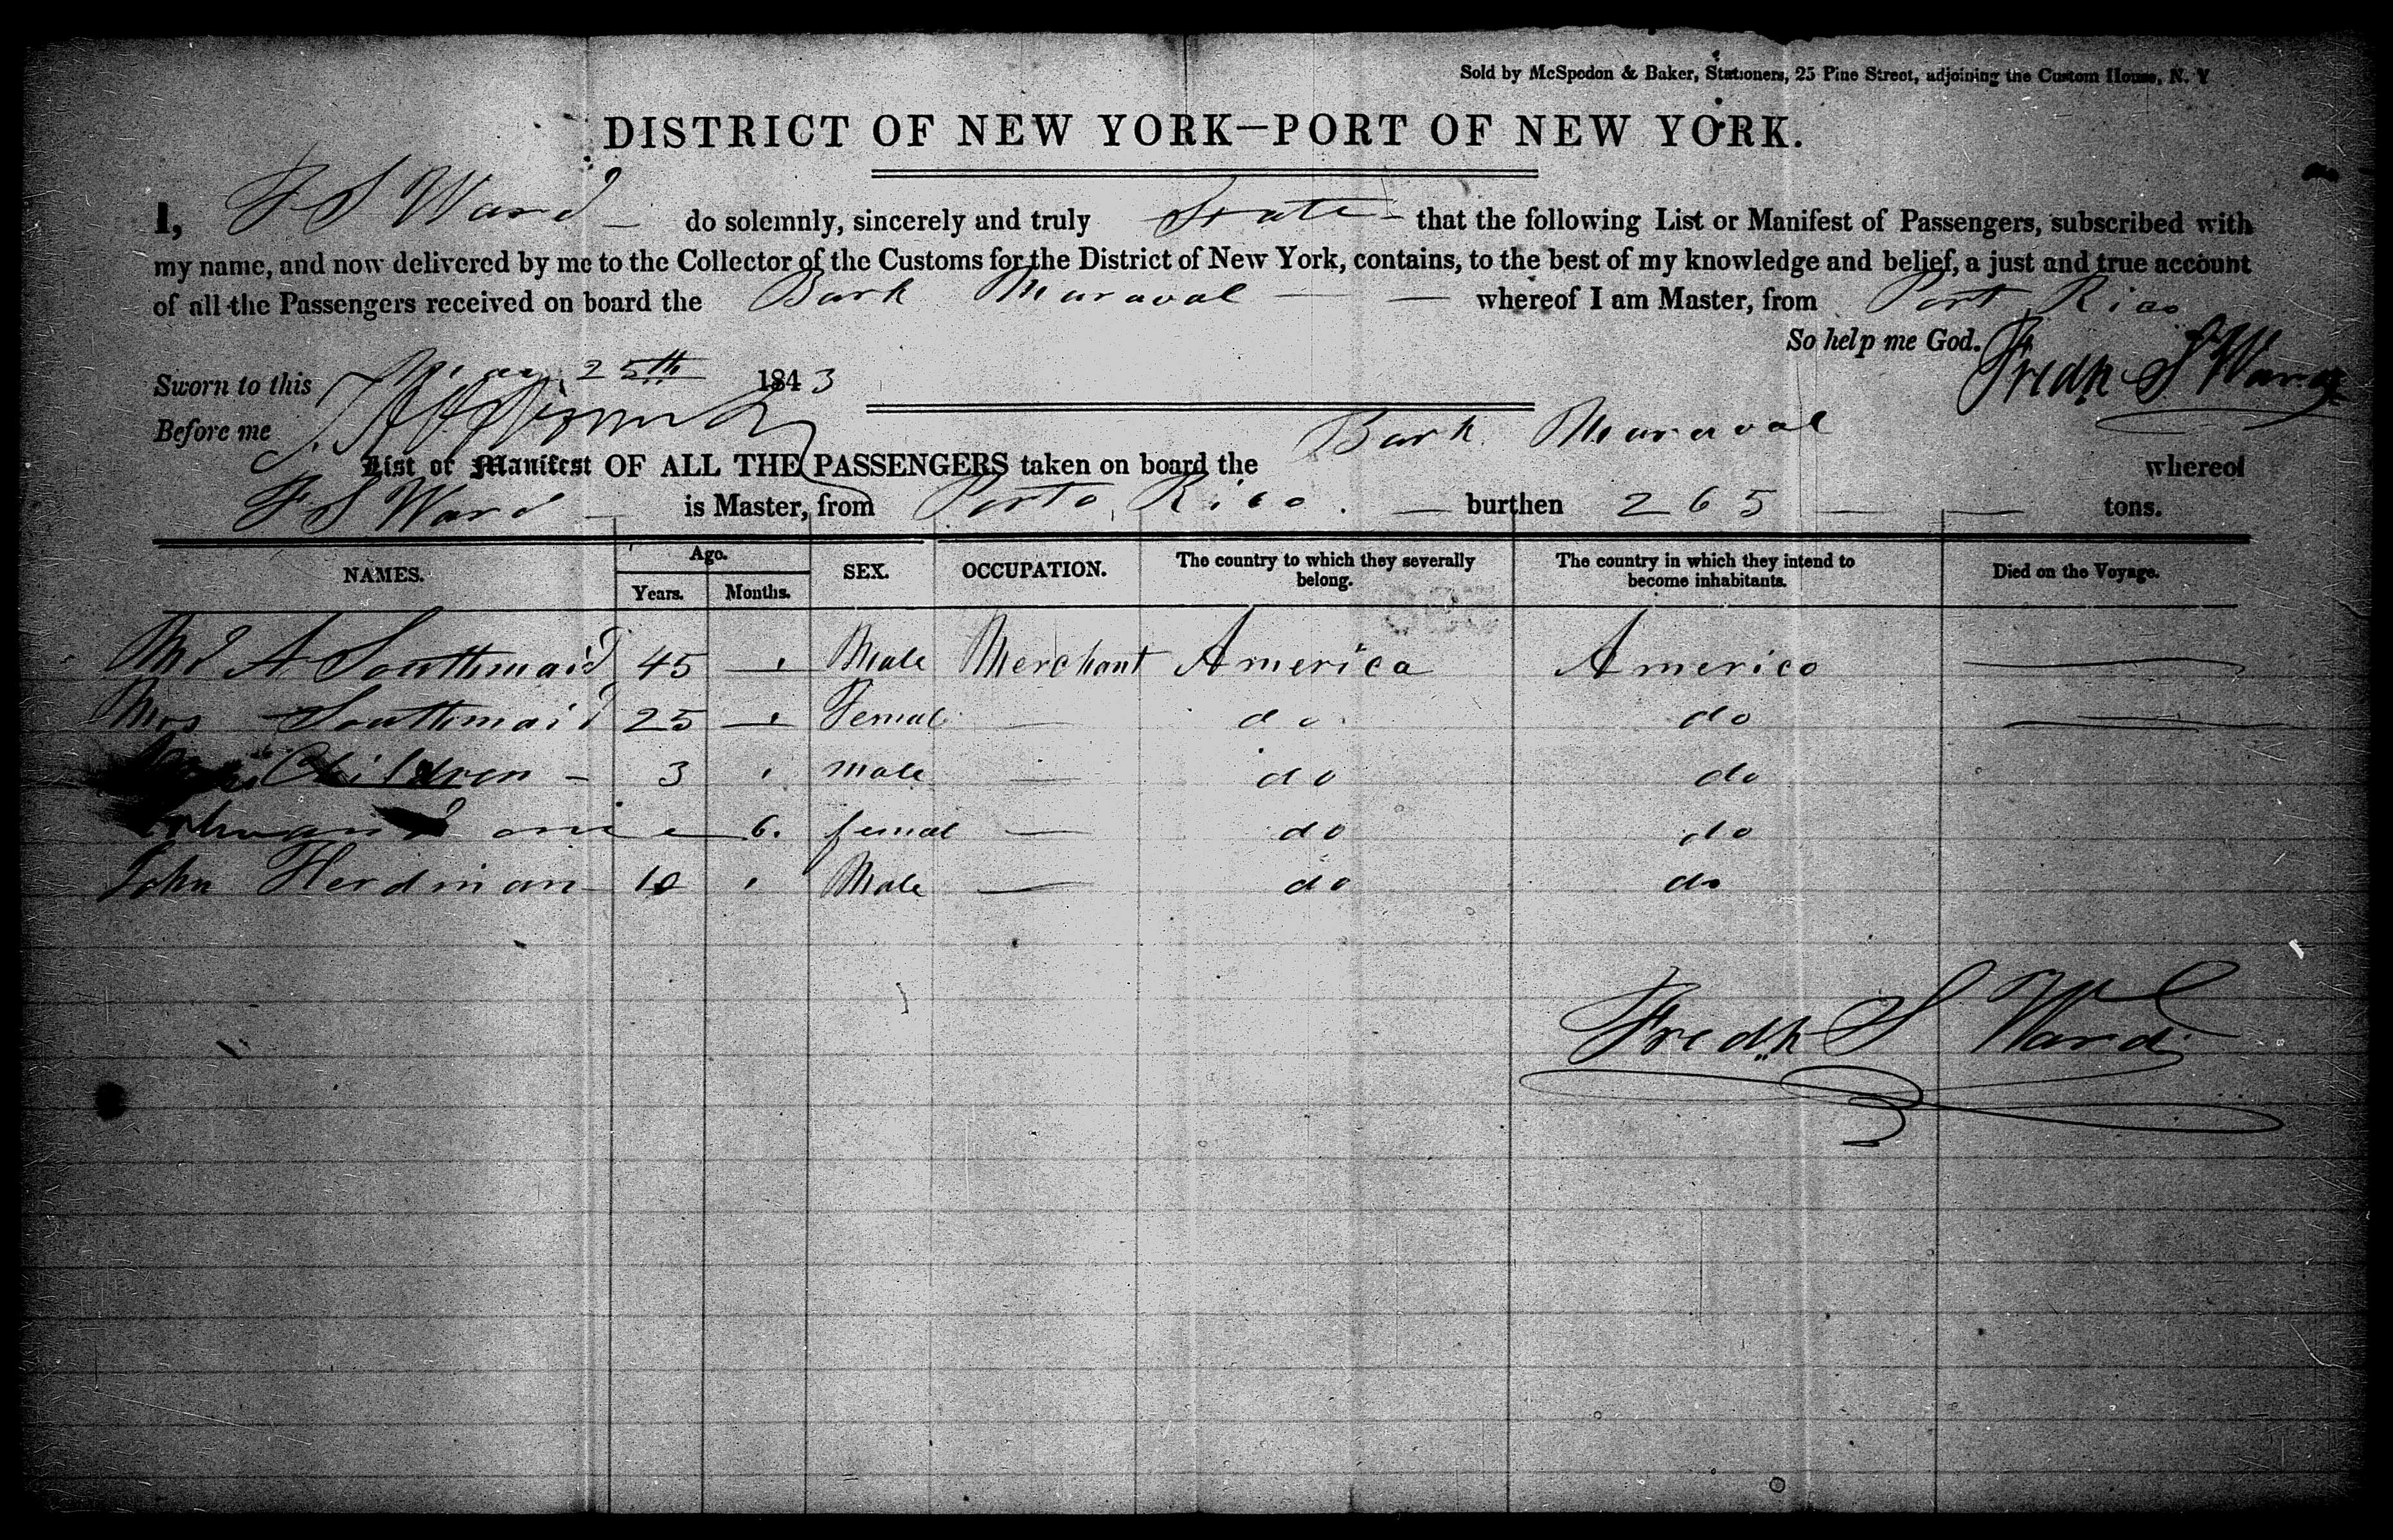 Sold by McSpedon & Baker, Stationers, 25 Pine Street, adjoining the Custom House, N. Y
DISTRICT OF NEW YORK—PORT OF NEW YORK.
I, F S Ward do solemnly, sincerely and truly State that the following List or Manifest of Passengers, subscribed with
my name, and now delivered by me to the Collector of the Customs for the District of New York, contains, to the best of my knowledge and belief, a just and true account
of all the Passengers received on board the Bark Maraval whereof I am Master, from Port Rico
So help me God. Fredk S Ward
Sworn to this May 25th 1843
Before me
List or Manifest OF ALL THE PASSENGERS taken on board the Bark Maraval whereof
F S Ward is Master, from Porto Rico. burthen 265 tons.
NAMES. Age. Years. Months. SEX. OCCUPATION. The country to which they severally belong. The country in which they intend to become inhabitants. Died on the Voyage.
A Southmaid 45 Male Merchant America America
Mrs Southmaid 25 Female do do
Children 3 male do do
6. femal do do
John Herdman 10 Male do do
Fredk S Ward